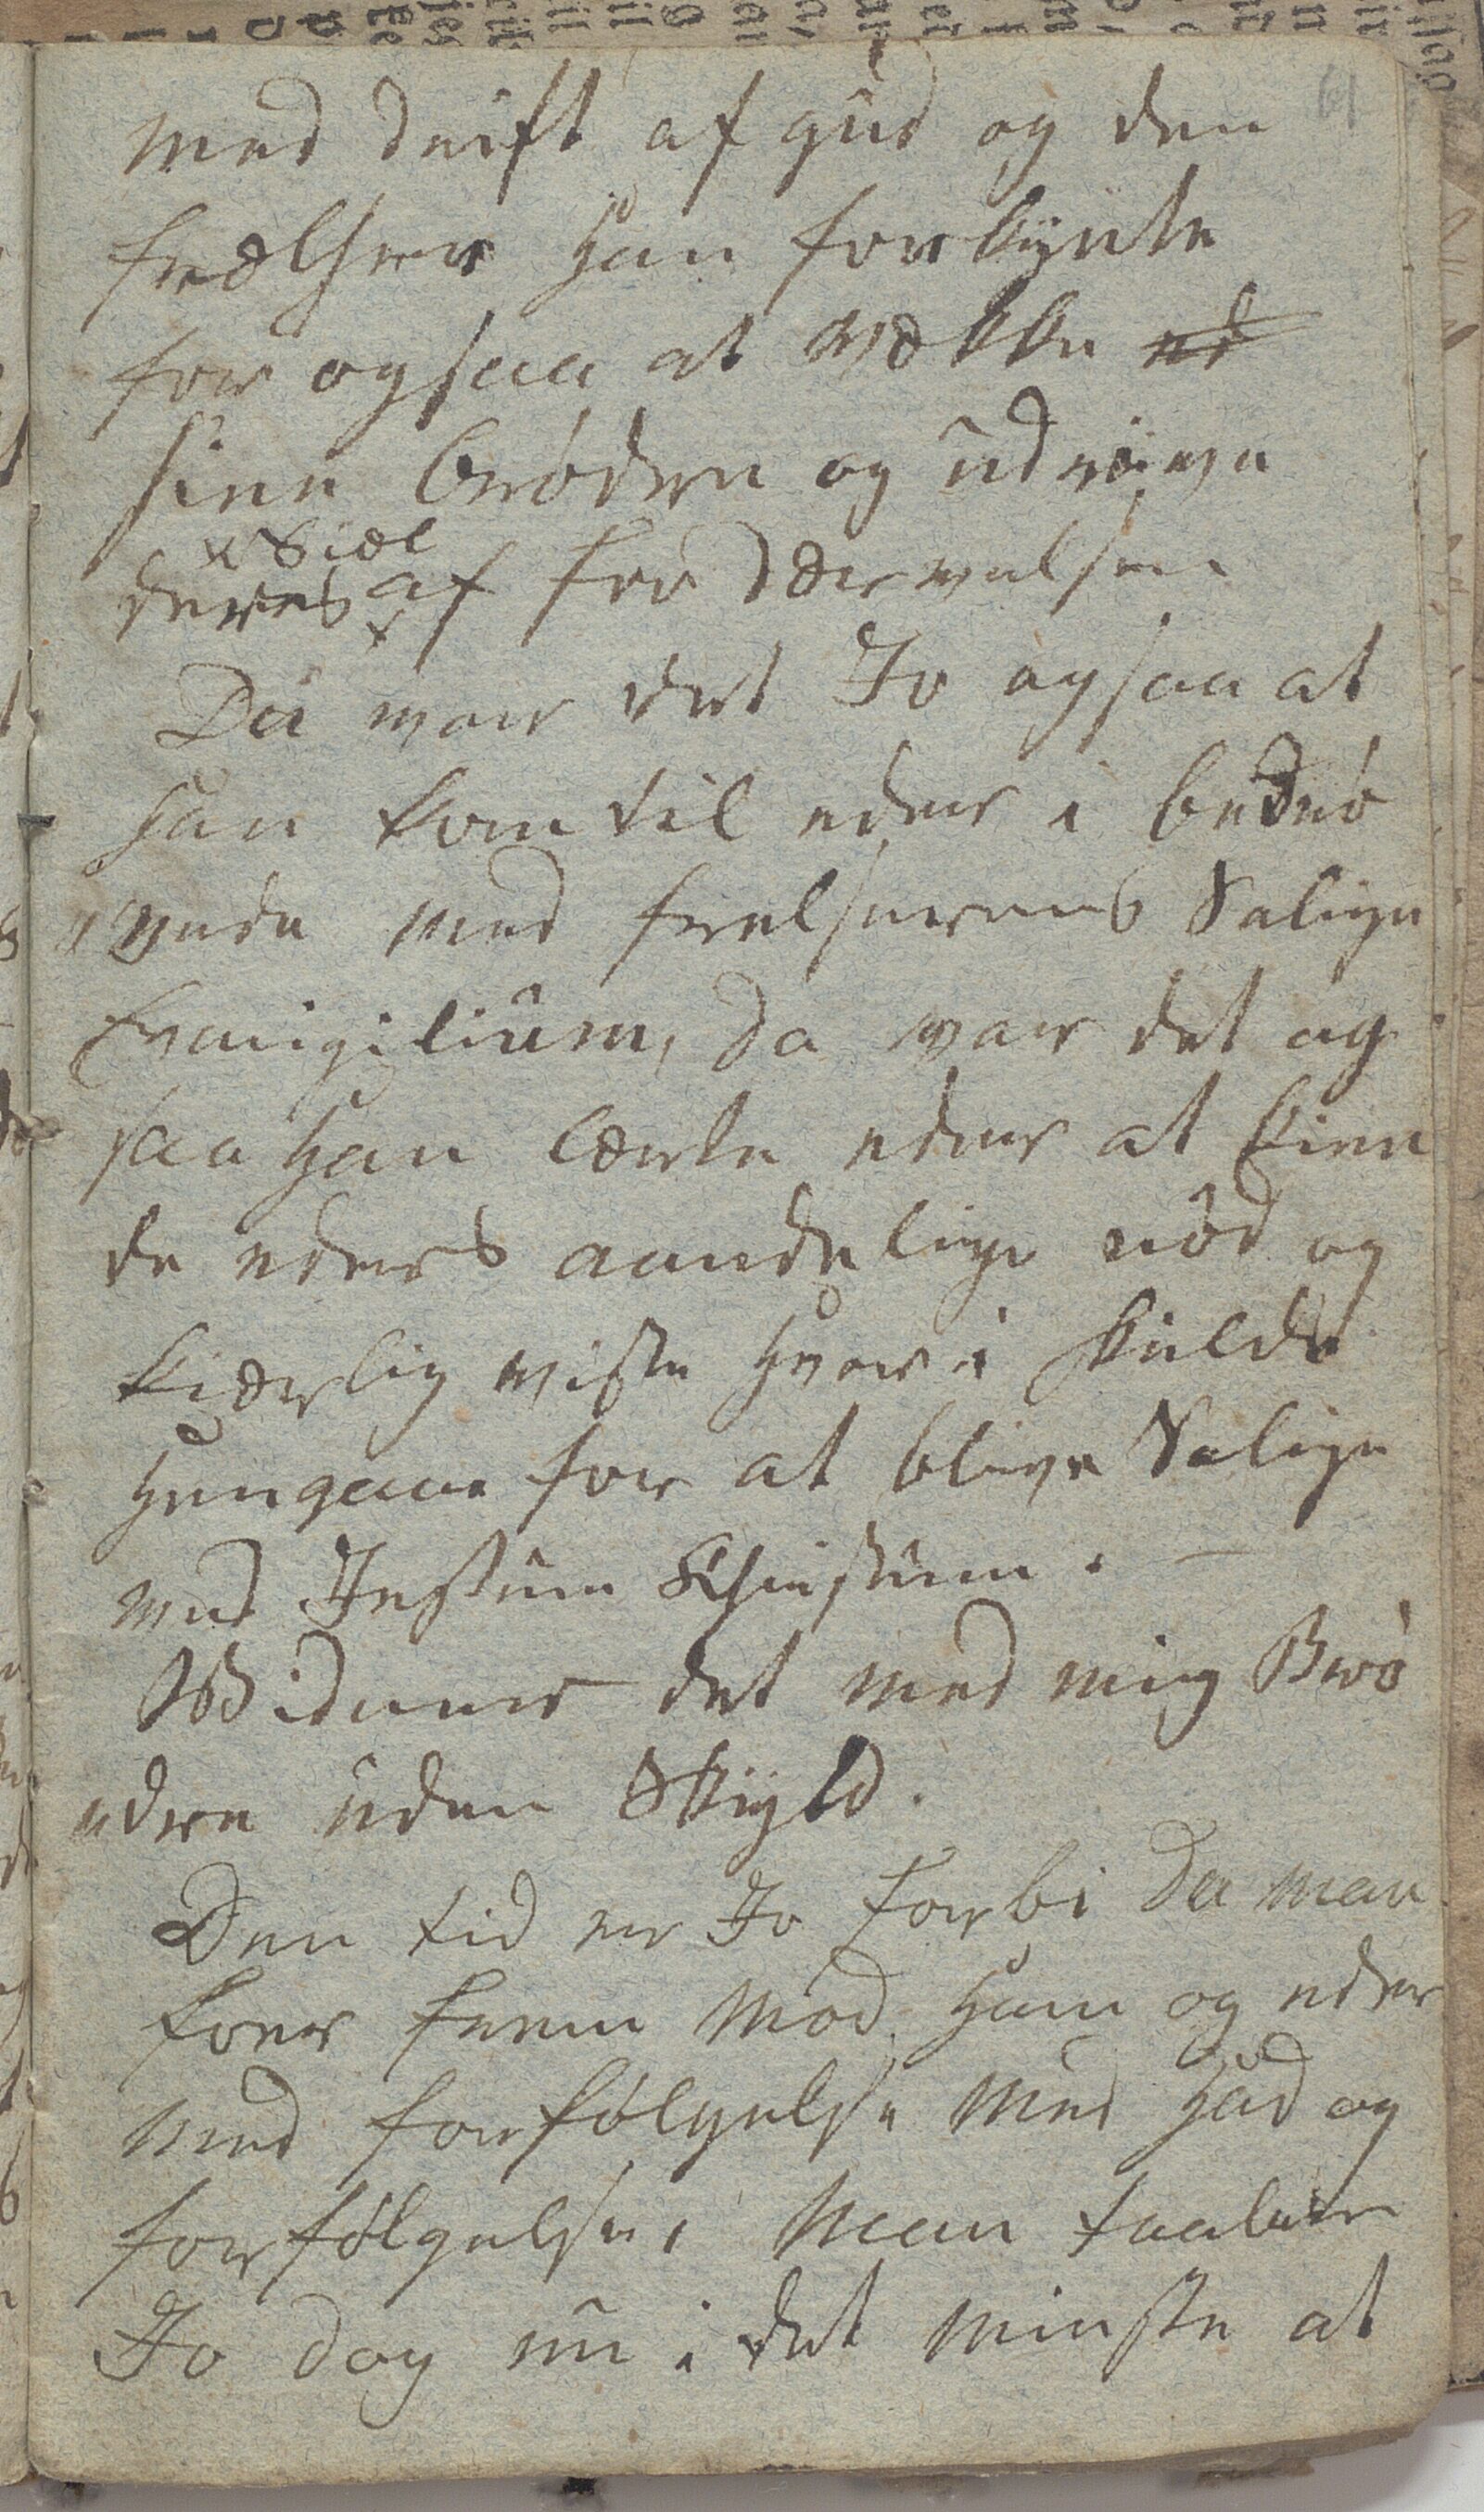 61
med drift af gud og den
frælser han forkynte
for ogsaa at wække ed
sine brødre og udrive
x Siæl
deres x af fordærvelsen
Da var det Jo ogsaa at
han kom til eder i bedrø
vede med frelserens Salige
Evangilium, da var det og
saa han lærte eder at kien
de eders aandelige nød og
kierlig viste hvor i skulde
hengaae for at blive Salige
ved Jesum Christum. —
Widner det med mig Brø
edre uden Skyld.
Den tid er Jo forbi da man
foer frem mod ham og eder
med forfølgelse med had og
forfølgelse, man taaler
Jo dog nu i det minste at